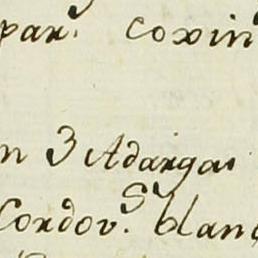 par.^s coxin
n 3 Adargas
Cordov.^s blanc